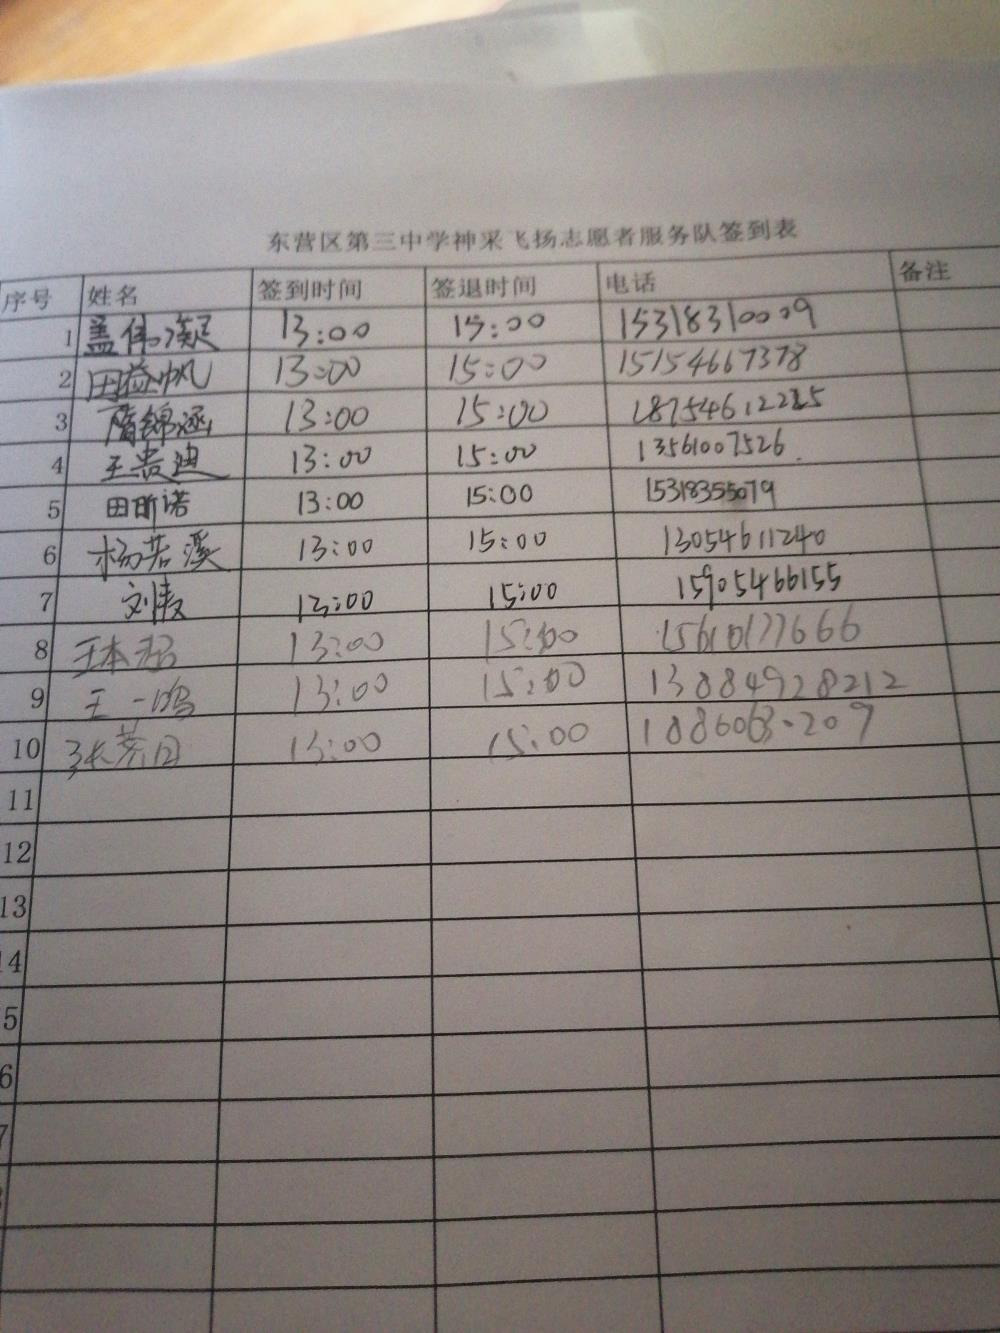 东营区第三中学神采飞扬志愿者服务队签到表
序号 姓名 签到时间 签退时间 电话 备注
1 盖伟凝 13:00 15:00 15318310009
2 田益帆 13:00 15:00 15154667378
3 隋锦涵 13:00 15:00
4 王贵迪 13:00 15:00 13561007526
5 田昕诺 13:00 15:00 15318355079
6 杨若溪 13:00 15:00 13054611240
7 刘 13:00 15:00 15905466155
8 王本 13:00 15:00 15610177666
9 王一鸣 13:00 15:00 13884928212
10 张 13:00 15:00
11
12
13
14
5
6
7